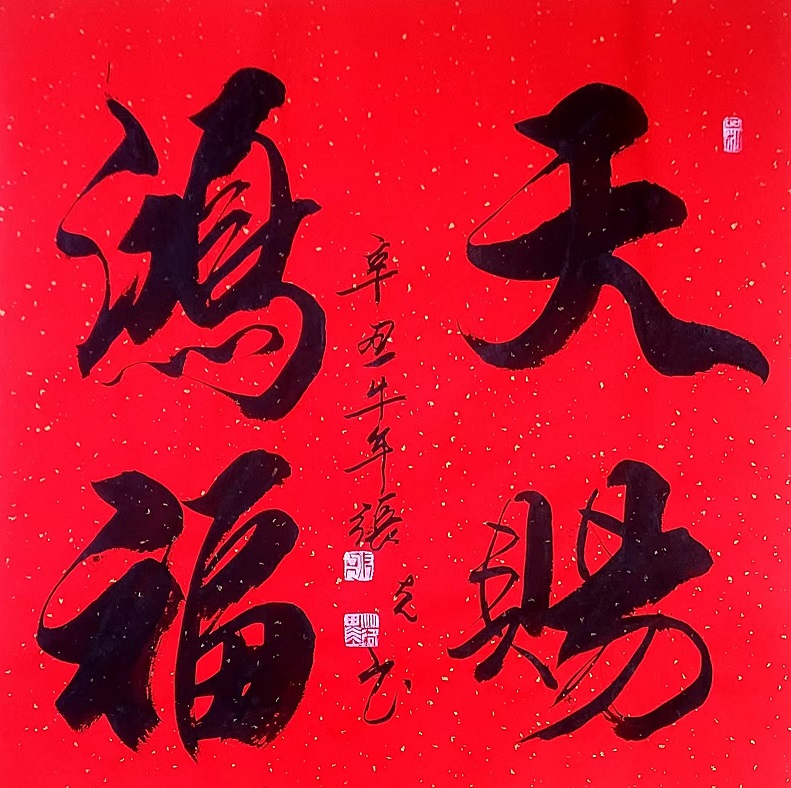 天赐
鸿福
辛丑牛年張克书